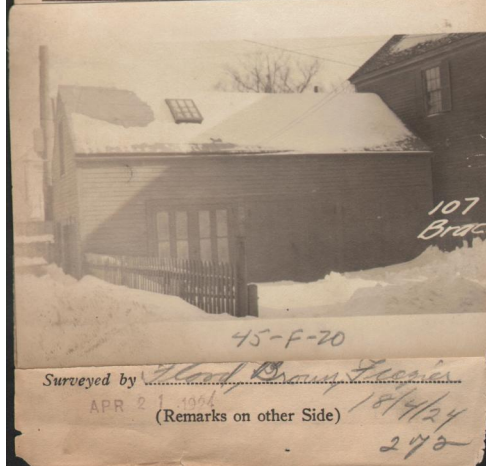 107
Brac
45-F-20
Surveyed by Flood, Brown, Frazier
APR 21 1924
(Remarks on other Side) 18/4/24
272